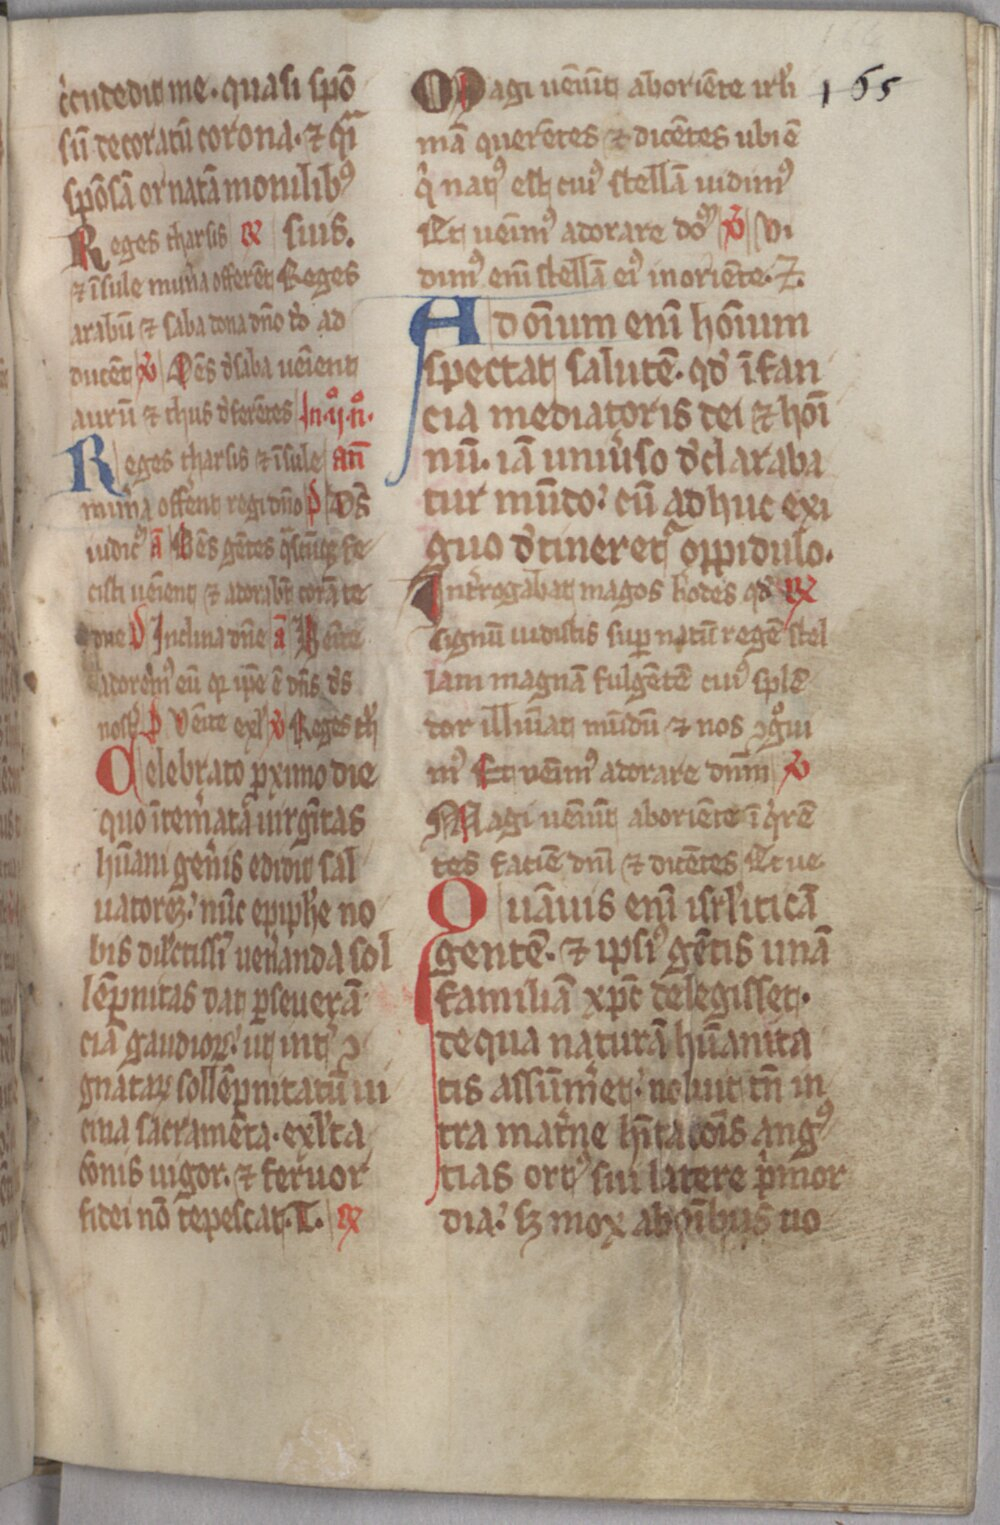 c̉cūdedit me. quasi spō
sū decoratū corona. ⁊ q̄i
spōsā ornatā monilibꝰ
Reges tharsis ℟ suis.
⁊ īsule mun̉a offerēt Reges
arabū ⁊ saba dona dn̄o d̓o ad
ducēt ℣ Oēs d̓ saba uēient
aurū ⁊ thus d̓ferētes Jn .ij. n̊.
Reges tharsis ⁊ īsule an̄
mun̉a offer̄nt regi dn̄o p̄ Ds̄
iudic̉ a̅ Oēs gētes q̄scūqꝫ fe
cisti uēient ⁊ adorabt̄ corā te
dn̄e p̄ Inclina dn̄e a̅ Uēite
adorem̉ꝰ eū qꝛ ip̄e ē dn̄s d̓s
nost̉ p̄ Uēite exl̓ ℣ Reges th̓
Celebrato ꝓximo die
quo ītem̉ata uirgītas
hūani gen̉is edidit sal
uatorē. nūc epiph̓e no
bis dil̓ctissī ueñanda sol
lēpnitas dat ꝑseuerā
ciā gaudioꝝ. ut int̉ ↄ
gnatas sollēpnitatū ui
cina sacramēta. exl̓ta
cōnis uigor. ⁊ feruor
fidei nō tepescat. T. ℟
Magi uēiūt ab oriēte irl̓i 165
mā querētes ⁊ dicētes ubi ē
q̉ natꝰ est cuiꝰ stellā uidimꝰ
Et uēimꝰ adorare do̅ꝰ ℣ Vi
dimꝰ eni̅ stellā eiꝰ in oriēte. ⁊.
Ad oīum eni̅ hōium
spectat salutē. qd̓ īfan
cia mediatoris dei ⁊ hoī
nū. iā uniu̓so d̓claraba
tur mūdo. cū adhuc exi
guo d̓tineret̉ oppidulo.
Int̉rogabat magos h̓odes qd̓ ℟
signū uidistis suꝑ natū regē stel
lam magnā fulgētē cuiꝰ splē
dor illuīat mūdū ⁊ nos ↄg̊ui
mꝰ Et uēimꝰ adorare dn̄m ℣
Magi uēiūt ab oriēte ī q̉rē
tes faciē dn̄i ⁊ dicētes Et ue
Quāuis eni̅ isrl̓iticā
gentē. ⁊ ipsiꝰ gētis unā
familiā xp̄c delegisset.
de qua naturā hūanita
tis assūm̉et. noluit tn̄ in
tra mat̉ne hītacōis angꝰ
tias ortꝰ sui latere p̉mor
dia. sꝫ mox ab oībus uo